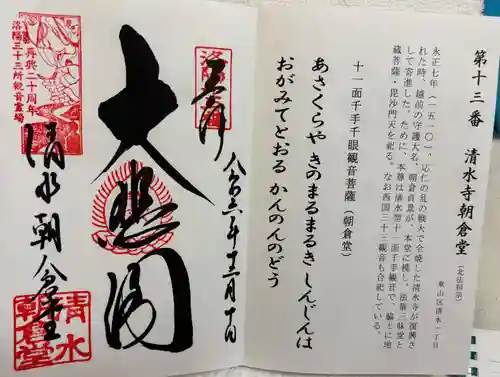 第十三番 清水寺朝倉堂（北法相宗）
東山区清水一丁目
永正七年（一五一〇）、応仁の乱の戦火で全焼した清水寺が復興さ
れた時、越前の守護大名、朝倉貞景が、本堂に模し、法華三昧堂と
して寄進した。ために、本尊は清水型十一面千手観音で、脇士に地
蔵菩薩・毘沙門天を祀る。なお西国三十三観音も合祀している。
十一面千手千眼観音菩薩（朝倉堂）
あさくらや きのまるまるき しんじんは
おがみてとおる かんのんのどう
奉拝
令和六年十二月十日
大悲閣
再興二十周年
洛陽三十三所観音霊場
清水朝倉堂
清水
朝倉堂